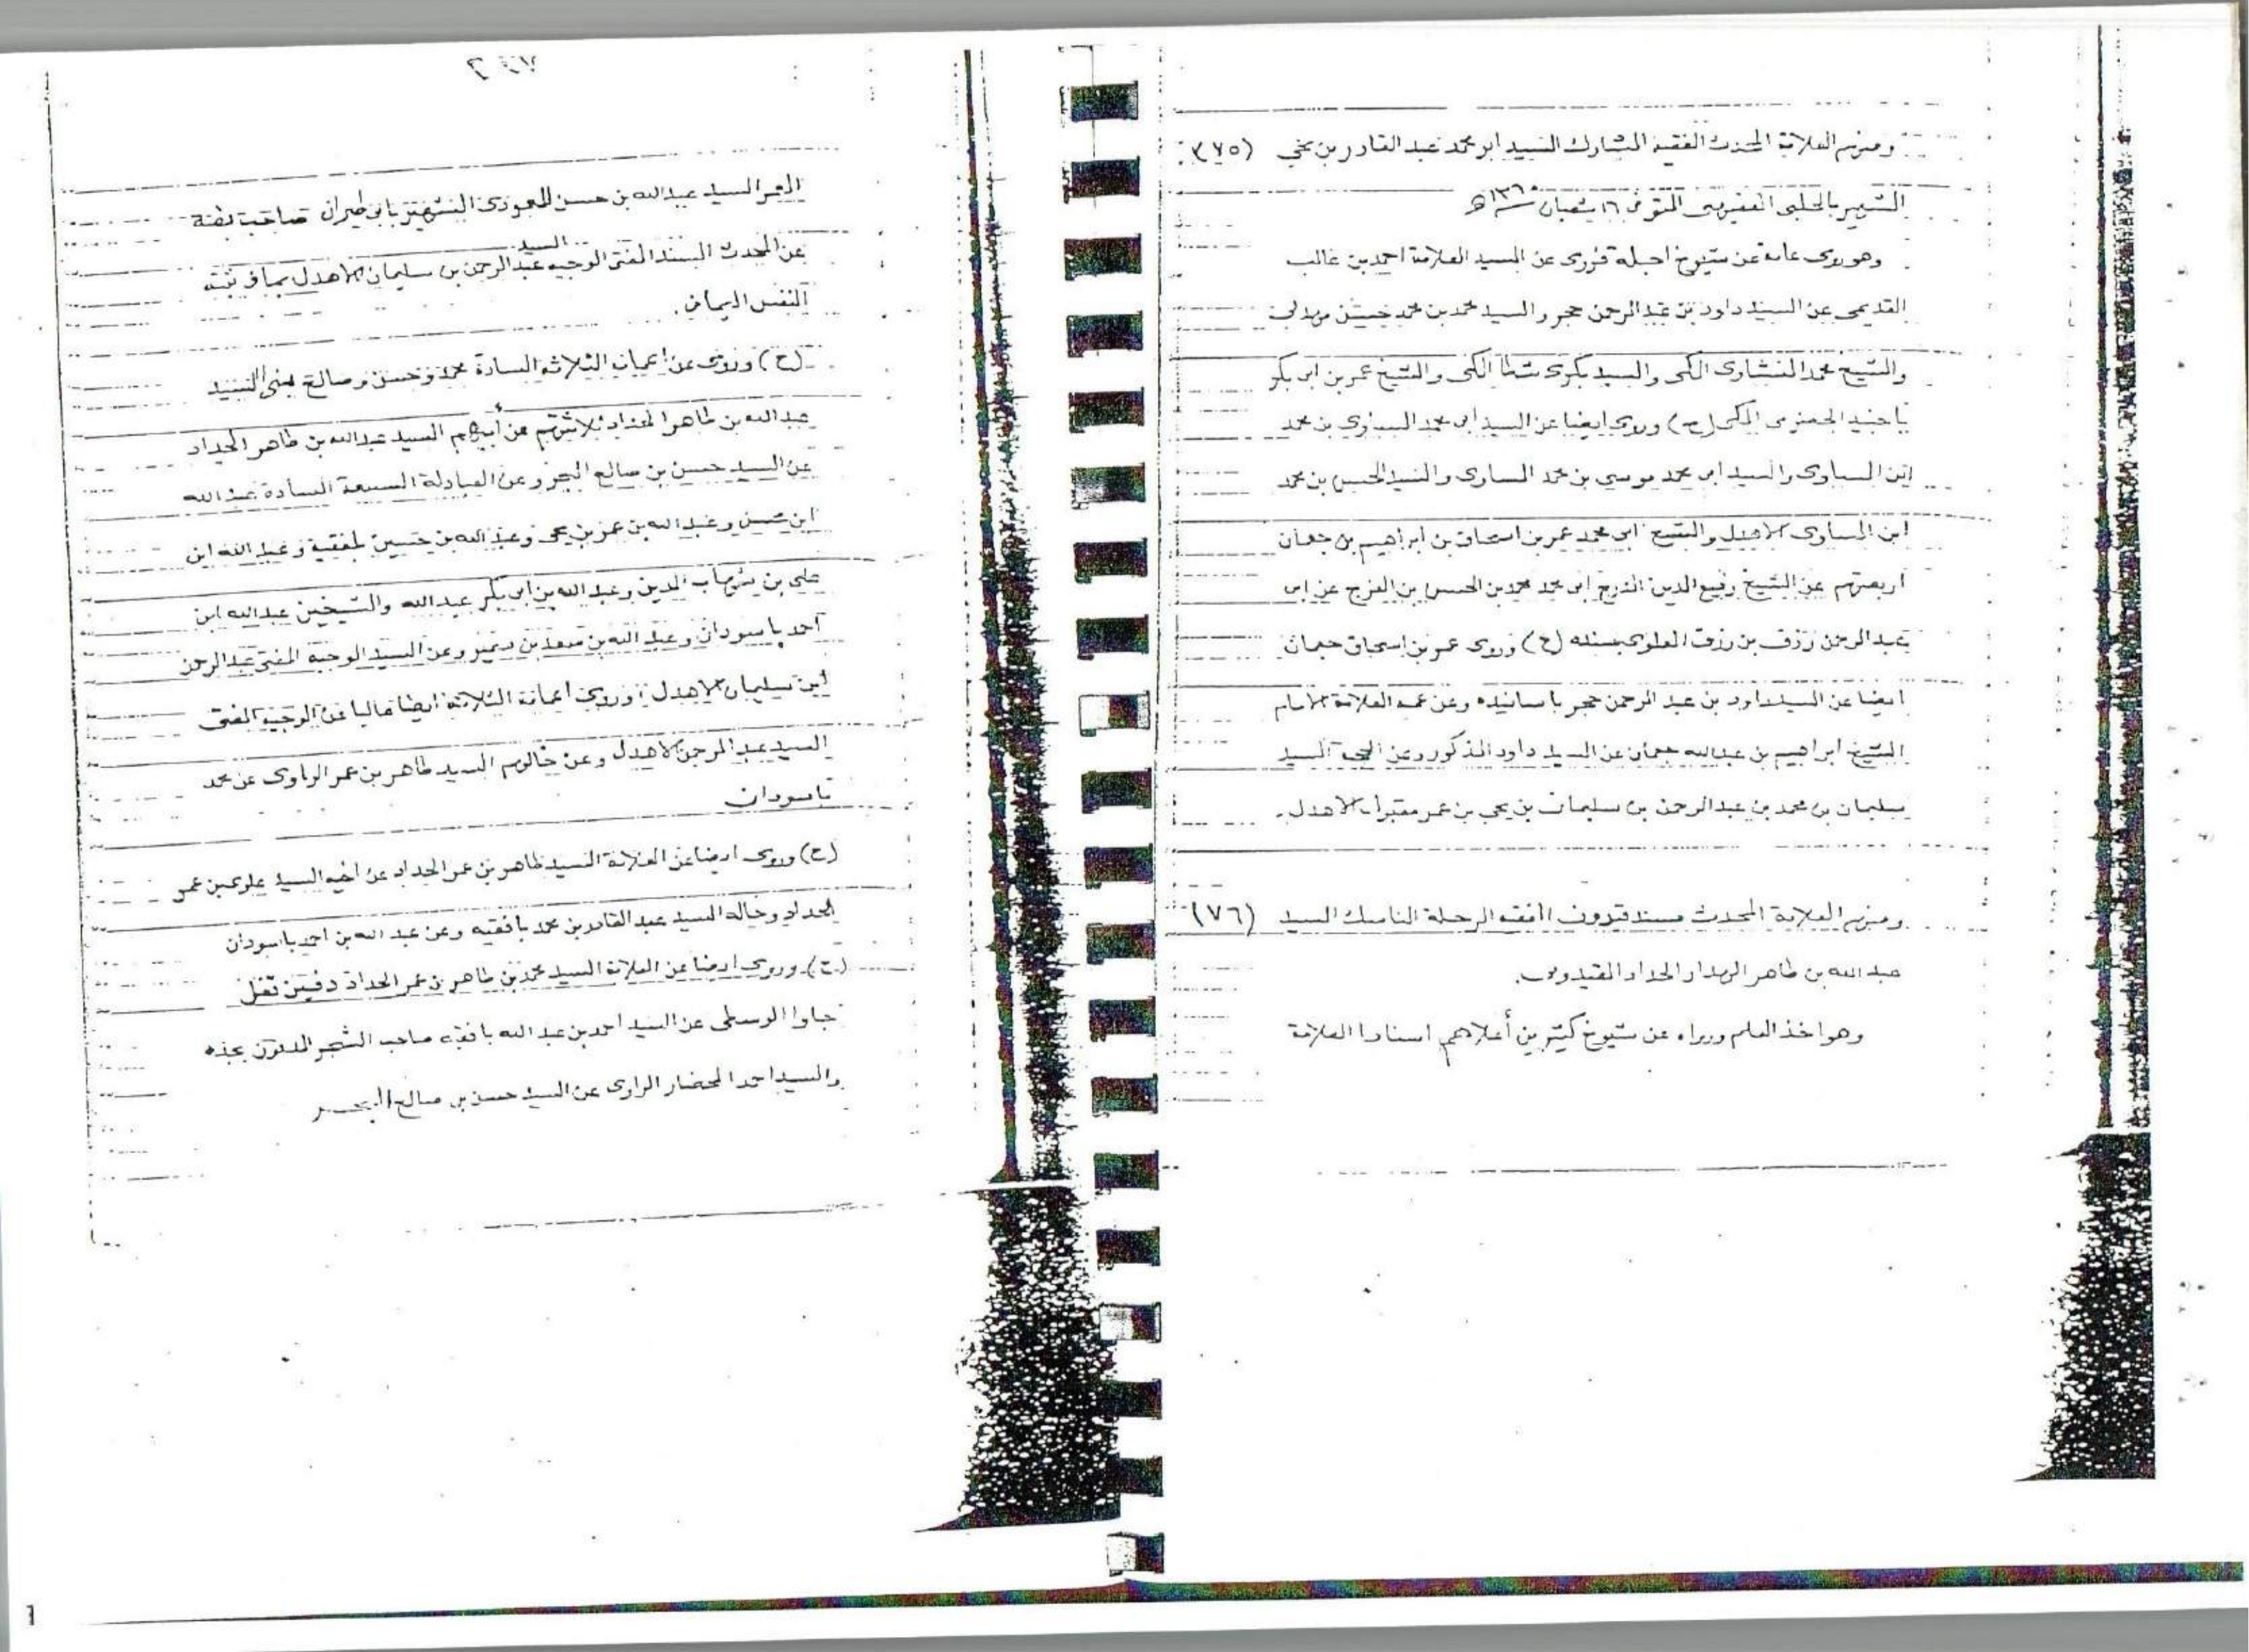 ومنهم العلامة المحدث الفقيه المشارك السيد ابو محمد عبد القادر بن يحي (٧٥)
الشهير بالحلبي المتوفى ١٦ شعبان سنة ١٣٦٠ هـ
وهو يروى عامة عن شيوخ اجلة فروى عن السيد العلامة احمد بن غالب
القديمى عن السيد داود بن عبد الرحمن حجر والسيد محمد بن محمد حسن
والشيخ محمد المكى والسيد بكرى شطا المكى والشيخ عمر بن ابى بكر
باجنيد المكى (ح) وروى ايضا عن السيد ابى محمد بن محمد
ابن المساوى والسيد ابى محمد موسى بن محمد المساوى والسيد الحسن بن محمد
ابن المساوى الاهدل والشيخ ابى محمد عمر بن اسحاق بن ابراهيم بن جعمان
اربعتهم عن الشيخ رفيع الدين ابى محمد محمد بن الحسن بن الفرج عن ابى
عبد الرحمن رزق بن رزق العلوى بسنده (ح) وروى عمر بن اسحاق جعمان
ايضا عن السيد داود بن عبد الرحمن حجر باسانيده وعن عمه العلامة الامام
الشيخ ابراهيم بن عبدالله جعمان عن السيد داود المذكور وعن السيد
سليمان بن محمد بن عبد الرحمن بن سليمان بن يحي بن عمر مقبول الاهدل.
ومنهم العلامة المحدث مسند قيدون الفقيه الرحلة الناسك السيد (٧٦)
عبد الله بن طاهر الهدار الحداد القيدونى.
وهو اخذ العلم ورواه عن شيوخ كثيرين أعلاهم اسنادا العلامة
المعمر السيد عبدالله بن حسن الشهير بابن صاحب بقتة
عن المحدث المسند المفتى الوجيه السيد عبد الرحمن بن سليمان الاهدل بما فى ثبته
النفس اليمانى.
(ح) وروى عن اعمامه الثلاثة السادة محمد وحسن وصالح بنى السيد
عبد الله بن طاهر الحداد ثلاثتهم عن أبيهم السيد عبد الله بن طاهر الحداد
عن السيد حسن بن صالح البحر وعن العبادلة السبعة السادة عبد الله
ابن حسين وعبد الله بن عمر بن يحي وعبد الله بن حسين بلفقيه وعبد الله ابن
على بن شهاب الدين وعبد الله بن ابى بكر عبد الله والشيخين عبد الله ابن
احمد باسودان وعبد الله بن سعد بن سمير وعن السيد الوجيه المفتى عبد الرحمن
ابن سليمان الاهدل وروى اعمامه الثلاثة ايضا عاليا عن الوجيه المفتى
السيد عبد الرحمن الاهدل وعن خالهم السيد طاهر بن عمر الراوى عن محمد
باسودان
(ح) وروى ايضا عن العلامة السيد طاهر بن عمر الحداد عن اخيه السيد علوى بن عمر
الحداد وخاله السيد عبد القادر بن محمد بافقيه وعن عبد الله بن احمد باسودان
(ح) وروى ايضا عن العلامة السيد محمد بن طاهر بن عمر الحداد دفين تقل
جاوا الوسطى عن السيد احمد بن عبد الله بافقيه صاحب الشحر المدفون بجده
والسيد احمد المحضار الراوى عن السيد حسن بن صالح البحر